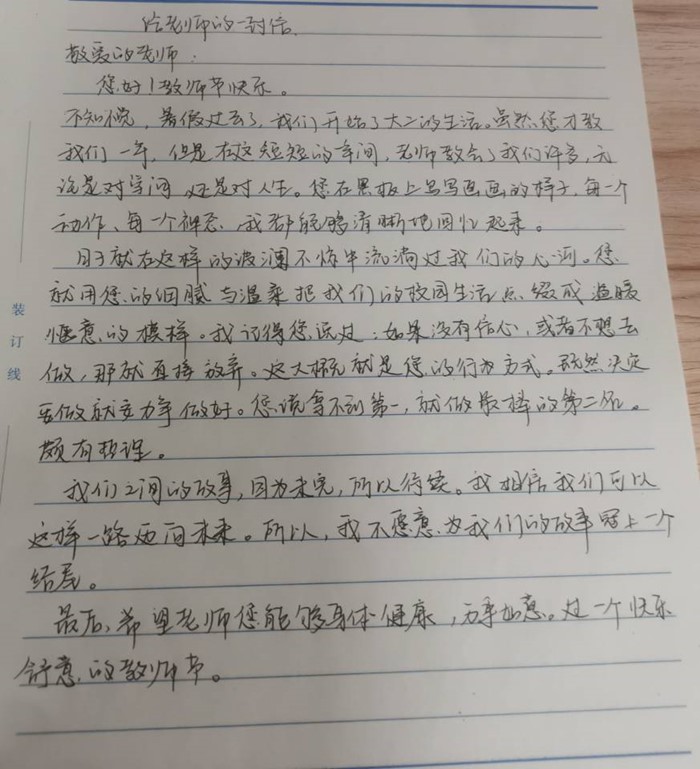 给老师的一封信
敬爱的老师:
您好!教师节快乐。
不知不觉,暑假过去了,我们开始了大二的生活。虽然您才教
我们一年,但是在这短短的年间,老师教会了我们许多,无
论是对学问 还是对人生。您在黑板上写写画画的样子,每一个
动作、每一个神态,我都能够清晰地回忆起来。
日子就在这样的波澜不惊中流淌过我们的心河。您
就用您的细腻与温柔把我们的校园生活点缀成温暖
惬意的模样。我记得您说过:如果没有信心,或者不想去
做,那就直接放弃。这大概就是您的行为方式。既然决定
要做就要力争做好。您说拿不到第一,就做最棒的第二名。
颇有哲理。
我们之间的故事,因为未完,所以待续。我相信我们可以
这样一路迈向未来。所以,我不愿意为我们的故事冠上一个
结尾。
最后,希望老师您能够身体健康,万事如意。过一个快乐
舒意的教师节。
装
订
线